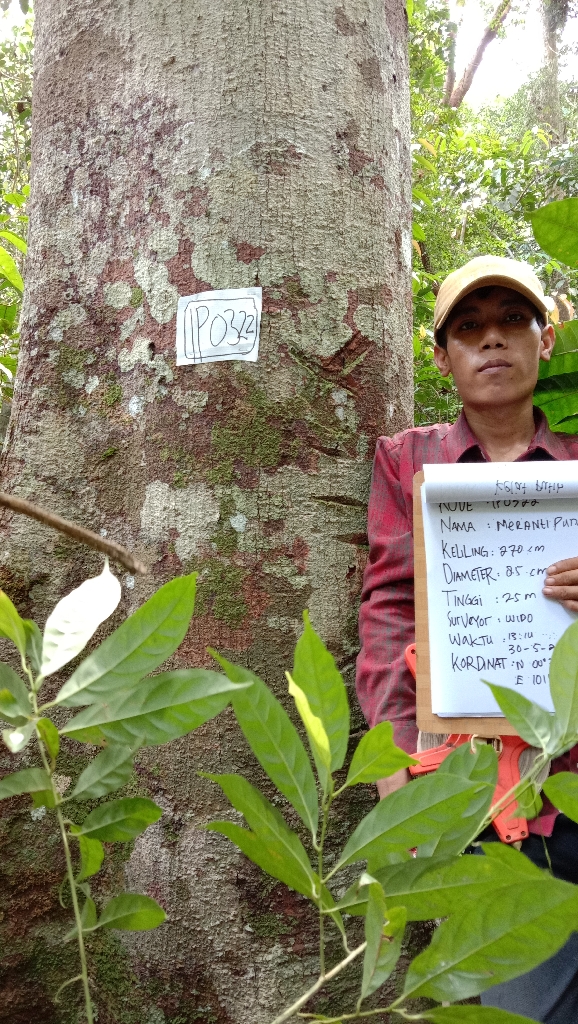 IP0322
KODE : IP0322
NAMA : MERANTI
KELILING : 270 cm
DIAMETER : 85 cm
TINGGI : 25 m
Surveyor : WIDO
WAKTU :
30-5-
KORDINAT : N 00°
E 101